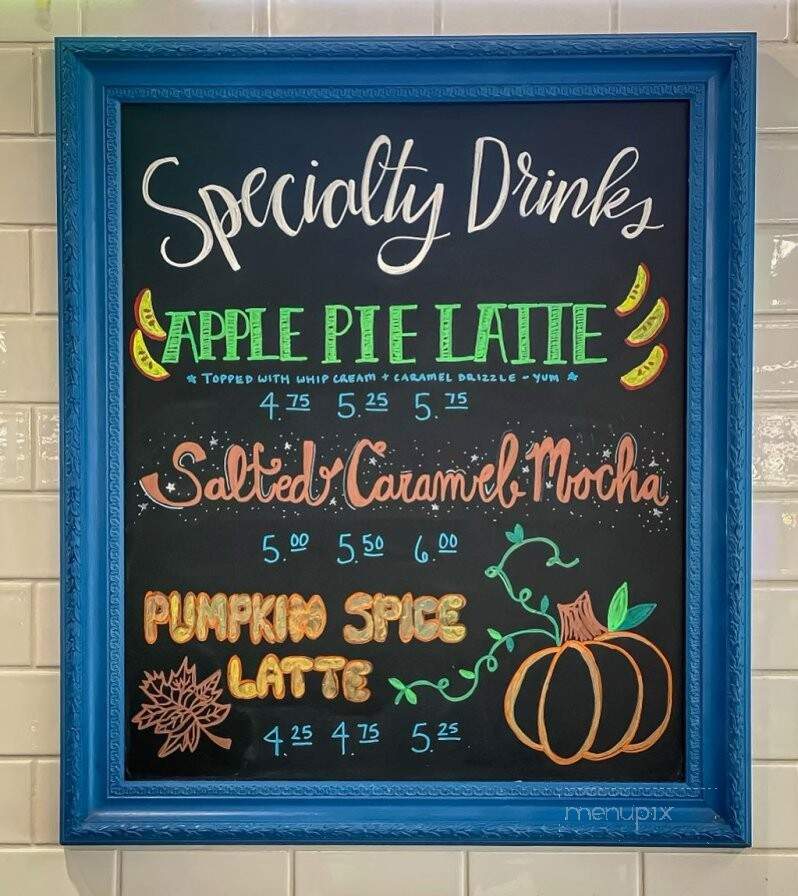 Specialty Drinks
APPLE PIE LATTE
* TOPPED WITH WHIP CREAM + CARAMEL DRIZZLE - YUM *
4.75 5.25 5.75
Salted Caramel Mocha
5.00 5.50 6.00
PUMPKIN SPICE
LATTE
4.25 4.75 5.25
menupix